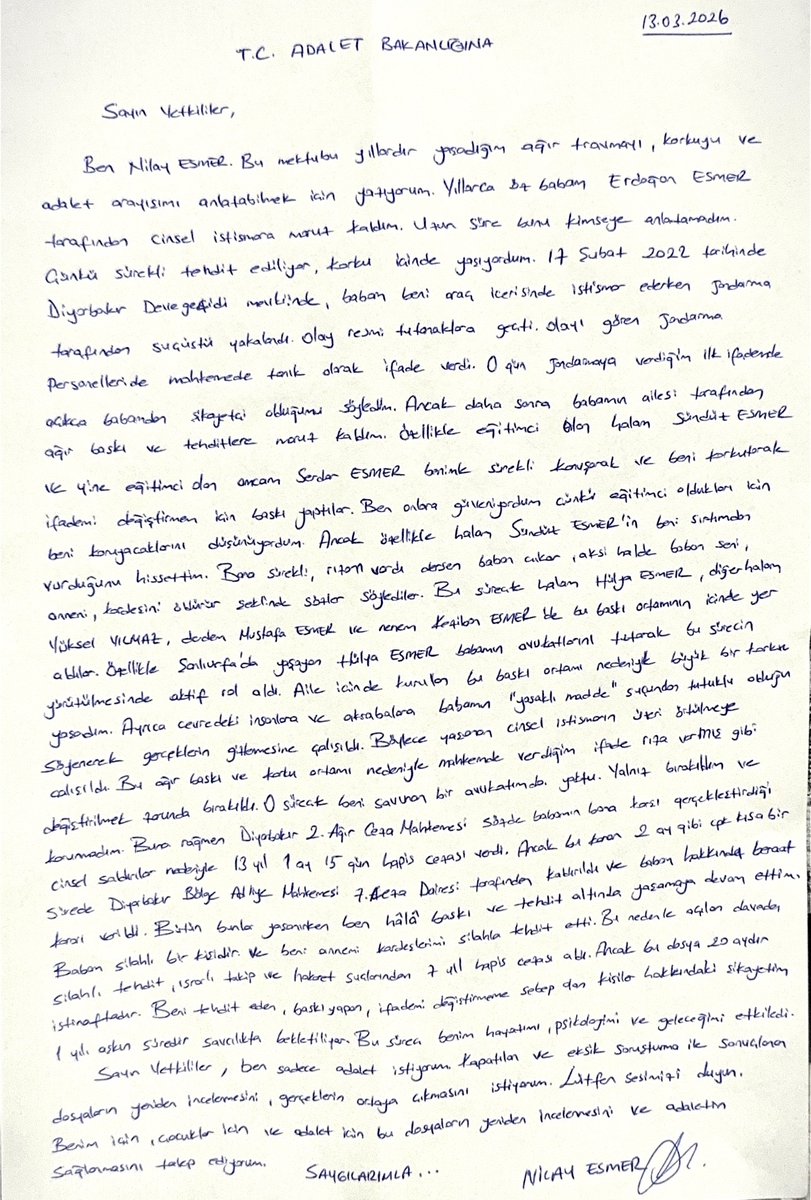 13.03.2026
T.C. ADALET BAKANLIĞINA
Sayın Yetkililer,
Ben Nilay ESMER. Bu mektubu yıllardır yaşadığım ağır travmayı, korkuyu ve
adalet arayışımı anlatabilmek için yazıyorum. Yıllarca öz babam Erdoğan ESMER
tarafından cinsel istismara maruz kaldım. Uzun süre bunu kimseye anlatamadım.
Çünkü sürekli tehdit ediliyor, korku içinde yaşıyordum. 17 Şubat 2022 tarihinde
Diyarbakır Devegeçidi mevkiinde, babam beni araç içerisinde istismar ederken jandarma
tarafından suçüstü yakalandı. Olay resmi tutanaklara geçti. Olayı gören jandarma
personelleride mahkemede tanık olarak ifade verdi. O gün jandarmaya verdiğim ilk ifademde
açıkça babamdan şikayetçi olduğumu söyledim. Ancak daha sonra babamın ailesi tarafından
ağır baskı ve tehditlere maruz kaldım. Özellikle eğitimci olan halam Sündüz ESMER
ve yine eğitimci olan amcam Serdar ESMER benimle sürekli konuşarak ve beni korkutarak
ifademi değiştirmem için baskı yaptılar. Ben onlara güveniyordum çünkü eğitimci oldukları için
beni koruyacaklarını düşünüyordum. Ancak özellikle halam Sündüz ESMER'in beni sırtımdan
vurduğunu hissettim. Bana sürekli, rızam vardı dersen baban çıkar, aksi halde baban seni,
anneni, kardeşini öldürür şeklinde sözler söylediler. Bu süreçte halam Hülya ESMER, diğer halam
Yüksel YILMAZ, dedem Mustafa ESMER ve nenem Keziban ESMER'de bu baskı ortamının içinde yer
aldılar. Özellikle Şanlıurfa'da yaşayan Hülya ESMER babamın avukatlarını tutarak bu sürecin
yürütülmesinde aktif rol aldı. Aile içinde kurulan bu baskı ortamı nedeniyle büyük bir korku
yaşadım. Ayrıca çevredeki insanlara ve akrabalara babamın "yasaklı madde" suçundan tutuklu olduğu
söylenerek gerçeklerin gizlenmesine çalışıldı. Böylece yaşanan cinsel istismarın üzeri örtülmeye
çalışıldı. Bu ağır baskı ve korku ortamı nedeniyle mahkemede verdiğim ifade rıza varmış gibi
değiştirilmek zorunda bırakıldı. O süreçte beni savunan bir avukatımda yoktu. Yalnız bırakıldım ve
korunmadım. Buna rağmen Diyarbakır 2. Ağır Ceza Mahkemesi sözde babamın bana karşı gerçekleştirdiği
cinsel saldırılar nedeniyle 13 yıl 1 ay 15 gün hapis cezası verdi. Ancak bu karar 2 ay gibi çok kısa bir
sürede Diyarbakır Bölge Adliye Mahkemesi 7. Ceza Dairesi tarafından kaldırıldı ve babam hakkında beraat
kararı verildi. Bütün bunlar yaşanırken ben hâlâ baskı ve tehdit altında yaşamaya devam ettim.
Babam silahlı bir kişidir ve beni annemi kardeşlerimi silahla tehdit etti. Bu nedenle açılan davada,
silahlı tehdit, ısrarlı takip ve hakaret suçlarından 7 yıl hapis cezası aldı. Ancak bu dosya 20 aydır
istinaftadır. Beni tehdit eden, baskı yapan, ifademi değiştirmeme sebep olan kişiler hakkındaki şikayetim
1 yılı aşkın süredir savcılıkta bekletiliyor. Bu süreç benim hayatımı, psikolojimi ve geleceğimi etkiledi.
Sayın Yetkililer, ben sadece adalet istiyorum. Kapatılan ve eksik soruşturma ile sonuçlanan
dosyaların yeniden incelemesini, gerçeklerin ortaya çıkmasını istiyorum. Lütfen sesimizi duyun.
Benim için, çocuklar için ve adalet için bu dosyaların yeniden incelemesini ve adaletin
sağlanmasını talep ediyorum.
SAYGILARIMLA...
NİLAY ESMER